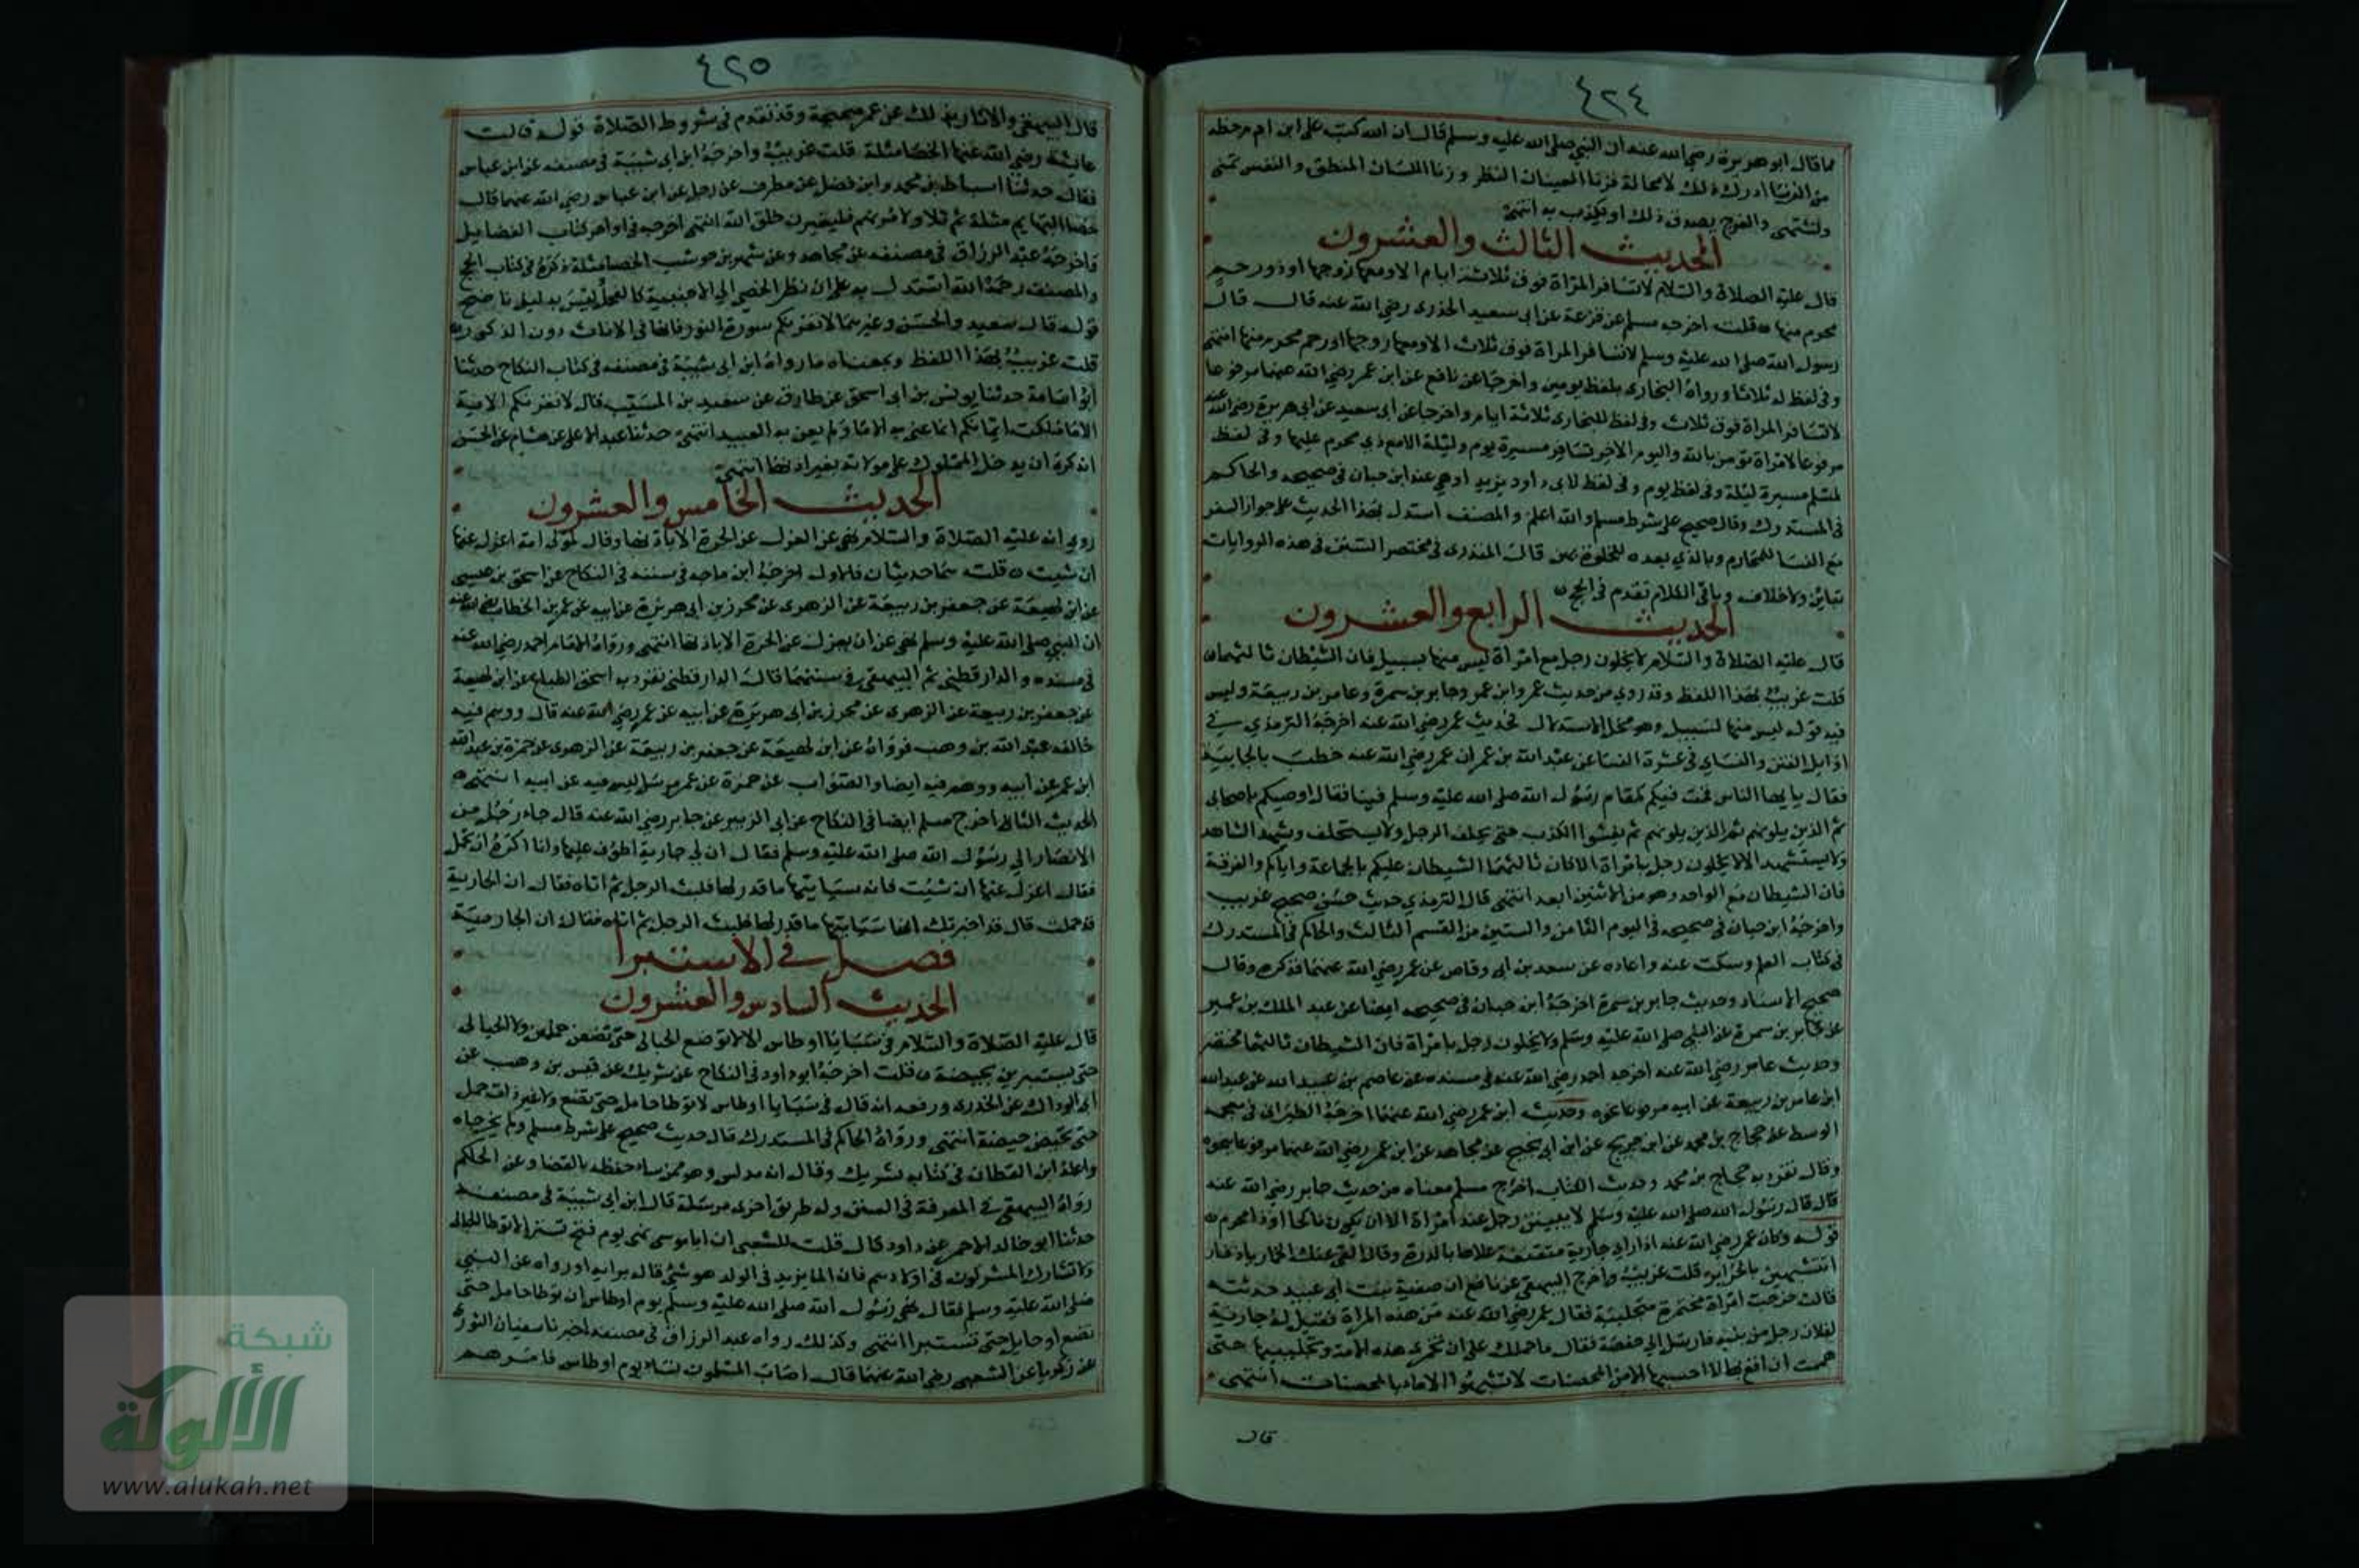 ٤٢٤
مما قال ابو هريرة رضي الله عنه ان النبي صلى الله عليه وسلم قال ان الله كتب على ابن ادم حظه
من الزنا ادرك ذلك لا محالة فزنا العينان النظر وزنا اللسان المنطق والنفس تمنى
وتشتهي والفرج يصدق ذلك او يكذب به انتهى
الحديث الثالث والعشرون
قال عليه الصلاة والسلام لا تسافر المراة فوق ثلاثة ايام الا ومعها زوجها او ذو رحم
محرم منها قلت اخرجه مسلم عن قزعة عن ابي سعيد الخدري رضي الله عنه قال قال
رسول الله صلى الله عليه وسلم لا تسافر المراة فوق ثلاث الا ومعها زوجها او رحم محرم منها انتهى
وفي لفظ له ثلاثا ورواه البخاري بلفظ يومين واخرجا عن نافع عن ابن عمر رضي الله عنهما مرفوعا
لا تسافر المراة فوق ثلاث وفي لفظ للبخاري ثلاثة ايام واخرجا عن ابي سعيد عن ابي هريرة رضي الله عنه
مرفوعا لامراة تؤمن بالله واليوم الاخر تسافر مسيرة يوم وليلة الا مع ذي محرم عليها وفي لفظ
لمسلم مسيرة ليلة وفي لفظ يوم وفي لفظ لابي داود بريد وهي عند ابن حبان في صحيحه والحاكم
في المستدرك وقال صحيح على شرط مسلم والله اعلم والمصنف استدل بهذا الحديث على جواز السفر
مع النسا للمحارم وبالذي بعده للخلوة بهن قال المنذري في مختصر السنن في هذه الروايات
تباين ولا خلاف وباقي الكلام تقدم في الحج
الحديث الرابع والعشرون
قال عليه الصلاة والسلام لا يخلون رجل مع امراة ليس منها بسبيل فان الشيطان ثالثهما
قلت غريب بهذا اللفظ وقد روي من حديث عمر وابن عمر وجابر بن سمرة وعامر بن ربيعة وليس
فيه قوله ليس منها بسبيل وهو محل الاستدلال فحديث عمر رضي الله عنه اخرجه الترمذي في
اوايل الفتن والنساي في عشرة النسا عن عبد الله بن عمر ان عمر رضي الله عنه خطب بالجابية
فقال يا يها الناس قمت فيكم كمقام رسول الله صلى الله عليه وسلم فينا فقال اوصيكم باصحابي
ثم الذين يلونهم ثم الذين يلونهم ثم يفشوا الكذب حتى يحلف الرجل ولا يستحلف ويشهد الشاهد
ولا يستشهد الا لا يخلون رجل بامراة الا كان ثالثهما الشيطان عليكم بالجماعة واياكم والفرقة
فان الشيطان مع الواحد وهو من الاثنين ابعد انتهى قال الترمذي حديث حسن صحيح غريب
واخرجه ابن حبان في صحيحه في النوع الثامن والستين من القسم الثالث والحاكم في المستدرك
في كتاب العلم وسكت عنه واعاده عن سعد بن ابي وقاص عن عمر رضي الله عنهما فذكره وقال
صحيح الاسناد وحديث جابر بن سمرة اخرجه ابن حبان في صحيحه ايضا عن عبد الملك بن عمير
عن جابر بن سمرة عن النبي صلى الله عليه وسلم ولا يخلون رجل بامراة فان الشيطان ثالثهما مختصر
وحديث عامر رضي الله عنه اخرجه احمد رضي الله عنه في مسنده عن عاصم بن عبيد الله عن عبد الله
ابن عامر بن ربيعة عن ابيه مرفوعا نحوه وحديث ابن عمر رضي الله عنهما اخرجه الطبراني في معجمه
الوسط عن حجاج بن محمد عن ابن جريج عن ابن ابي نجيح عن مجاهد عن ابن عمر رضي الله عنهما مرفوعا بنحوه
وقال تفرد به حجاج بن محمد وحديث الكتاب اخرج مسلم معناه من حديث جابر رضي الله عنه
قال قال رسول الله صلى الله عليه وسلم لا يبيتن رجل عند امراة الا ان يكون ناكحا او ذا محرم
قوله وكان عمر رضي الله عنه اذا راي جارية متقنعة علاها بالدرة وقال القي عنك الخمار يا دفار
اتتشبهين بالحراير قلت غريب واخرج البيهقي عن نافع ان صفية بنت ابي عبيد حدثته
قالت خرجت امراة مختمرة متجلببة فقال عمر رضي الله عنه من هذه المراة فقيل له جارية
لفلان رجل من بنيه فارسل الى حفصة فقال ما حملك على ان تخمري هذه الامة وتجلببيها حتى
هممت ان اقع بها لا احسبها الا من المحصنات لا تشبهوا الاماء بالمحصنات انتهى
قال
٤٢٥
قال البيهقي والاثار بذلك عن عمر صحيحة وقد تقدم في شروط الصلاة قوله قالت
عايشة رضي الله عنها الخصا مثلة قلت غريب واخرجه ابن ابي شيبة في مصنفه عن ابن عباس
فقال حدثنا اسباط بن محمد وابن فضل عن مطرف عن رجل عن ابن عباس رضي الله عنهما قال
خصا البهايم مثلة ثم تلا ولامرنهم فليغيرن خلق الله انتهى اخرجه في اواخر كتاب الفضايل
واخرجه عبد الرزاق في مصنفه عن مجاهد وعن شهر بن حوشب الخصا مثلة ذكره في كتاب الحج
والمصنف رحمه الله استدل به على ان نظر الخصي الى الاجنبية كالفحل وليس بدليل ناضج
قوله قال سعيد والحسن وغيرهما لا تغرنكم سورة النور فانها في الاناث دون الذكور
قلت غريب بهذا اللفظ وبمعناه ما رواه ابن ابي شيبة في مصنفه في كتاب النكاح حدثنا
ابو اسامة حدثنا يونس بن ابي اسحق عن طارق عن سعيد بن المسيب قال لا تغرنكم الاية
الا ما ملكت ايمانكم انما عني به الاما ولم يعن به العبيد انتهى حدثنا عبد الاعلى عن هشام عن الحسن
انه كره ان يدخل المملوك على مولاته بغير اذنها انتهى
الحديث الخامس والعشرون
روي انه عليه الصلاة والسلام نهى عن العزل عن الحرة الا باذنها وقال لمولى امة اعزل عنها
ان شيت قلت هما حديثان فالاول اخرجه ابن ماجه في سننه في النكاح عن اسحق بن عيسى
عن ابن لهيعة عن جعفر بن ربيعة عن الزهري عن محرز بن ابي هريرة عن ابيه عن عمر بن الخطاب رضي الله عنه
ان النبي صلى الله عليه وسلم نهى عن ان يعزل عن الحرة الا باذنها انتهى ورواه الامام احمد رضي الله عنه
في مسنده والدارقطني ثم البيهقي في سننهما قال الدارقطني تفرد به اسحق الطباع عن ابن لهيعة
عن جعفر بن ربيعة عن الزهري عن محرز بن ابي هريرة عن ابيه عن عمر رضي الله عنه قال ووهم فيه
خالفه عبد الله بن وهب فرواه عن ابن لهيعة عن جعفر بن ربيعة عن الزهري عن حمزة بن عبد الله
ابن عمر عن ابيه ووهم فيه ايضا والصواب عن حمزة عن عمر مرسل ليس فيه عن ابيه انتهى
الحديث الثاني اخرج مسلم ايضا في النكاح عن ابي الزبير عن جابر رضي الله عنه قال جاء رجل من
الانصار الى رسول الله صلى الله عليه وسلم فقال ان لي جارية اطوف عليها وانا اكره ان تحمل
فقال اعزل عنها ان شيت فانه سياتيها ما قدر لها فلبث الرجل ثم اتاه فقال ان الجارية
قد حملت قال قد اخبرتك انها سياتيها ما قدر لها فلبث الرجل ثم اتاه فقال ان الجارية
فصل في الاستبرا
الحديث السادس والعشرون
قال عليه الصلاة والسلام في سبايا اوطاس الا لا توضع الحبالى حتى تضعن حملهن ولا الحيالى
حتى يستبرين بحيضة قلت اخرجه ابو داود في النكاح عن شريك عن قيس بن وهب عن
ابي الوداك عن الخدري ورفعه انه قال في سبايا اوطاس لا توطا حامل حتى تضع ولا غير ذات حمل
حتى تحيض حيضة انتهى ورواه الحاكم في المستدرك قال حديث صحيح على شرط مسلم ولم يخرجاه
واعله ابن القطان في كتابه بشريك وقال انه مدلس وهو ممن ساء حفظه بالقضا وعن الحاكم
رواه البيهقي في المعرفة في السنن وله طريق اخرى مرسلة قال ابن ابي شيبة في مصنفه
حدثنا ابو خالد الاحمر عن داود قال قلت للشعبي ان ابا موسى نهى يوم فتح تستر الا توطا الحبالى
ولا تشارك المشركون في اولادهم فان الما يزيد في الولد هو شي قاله برايه او رواه عن النبي
صلى الله عليه وسلم فقال نهى رسول الله صلى الله عليه وسلم يوم اوطاس ان توطا حامل حتى
تضع او حايل حتى تستبرا انتهى وكذلك رواه عبد الرزاق في مصنفه اخبرنا سفيان الثوري
عن زكريا عن الشعبي رضي الله عنهما قال اصاب المسلمون نساء يوم اوطاس فامرهم
شبكة
الألوكة
www.alukah.net